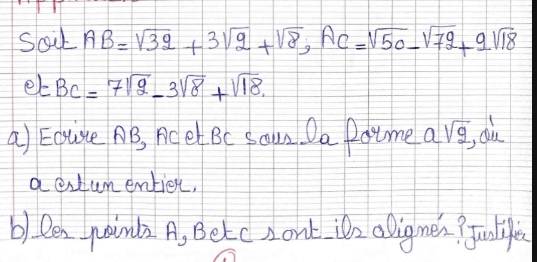 Soit AB = √32 + 3√2 + √8, AC = √50 - √72 + 2√18
et BC = 7√2 - 3√8 + √18.
a) Ecrire AB, AC et BC sous la forme a√2, où
a est un entier.
b) les points A, B et C sont-ils alignés ? Justifier